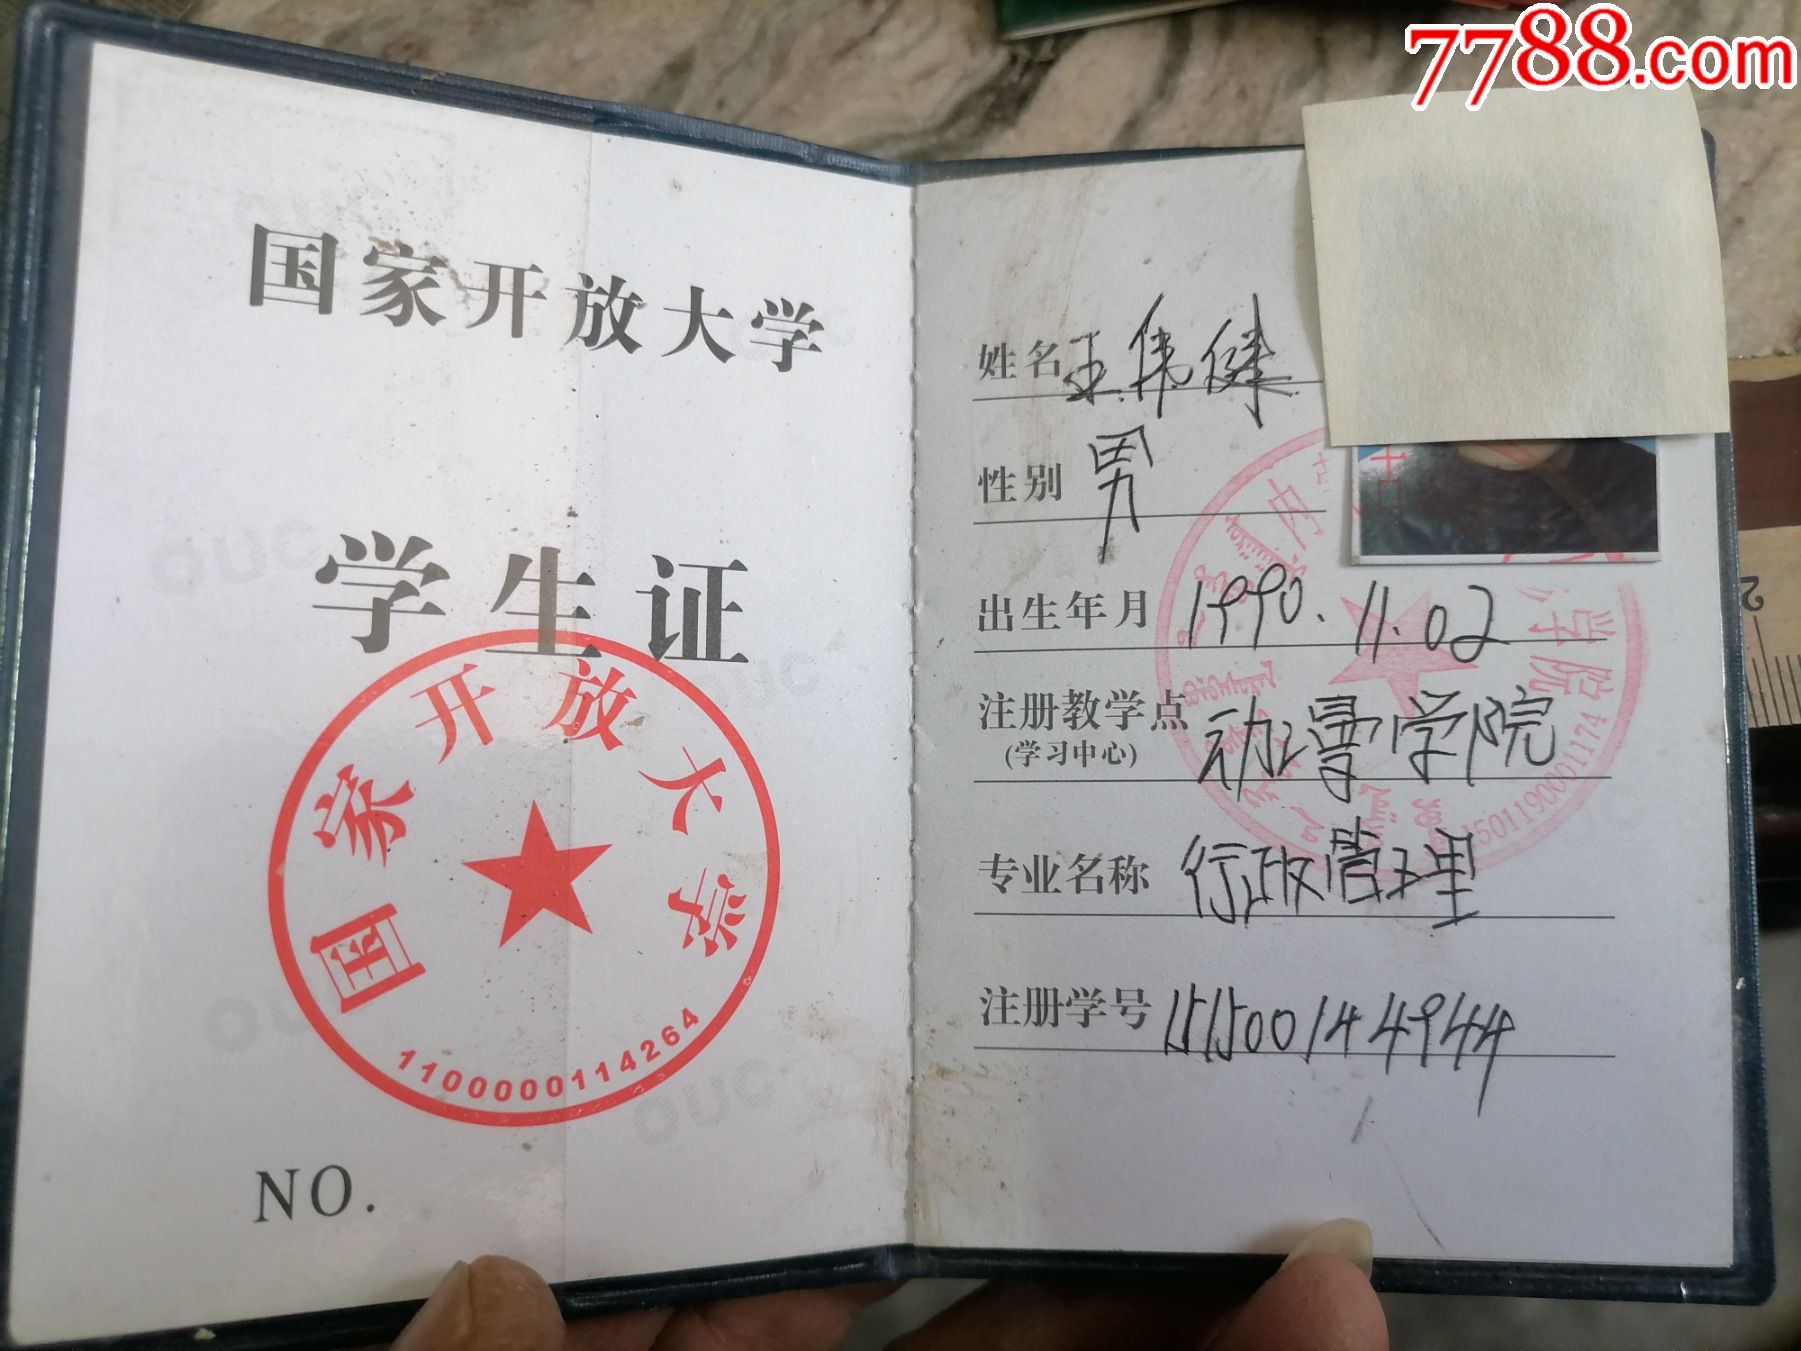 7788.com
国家开放大学
学生证
国家开放大学
1100000114264
NO.
姓名 王伟健
性别 男
出生年月 1990.11.02
注册教学点 学院
(学习中心)
专业名称 行政管理
注册学号 1515001444944
学院
1501190001174
OUC